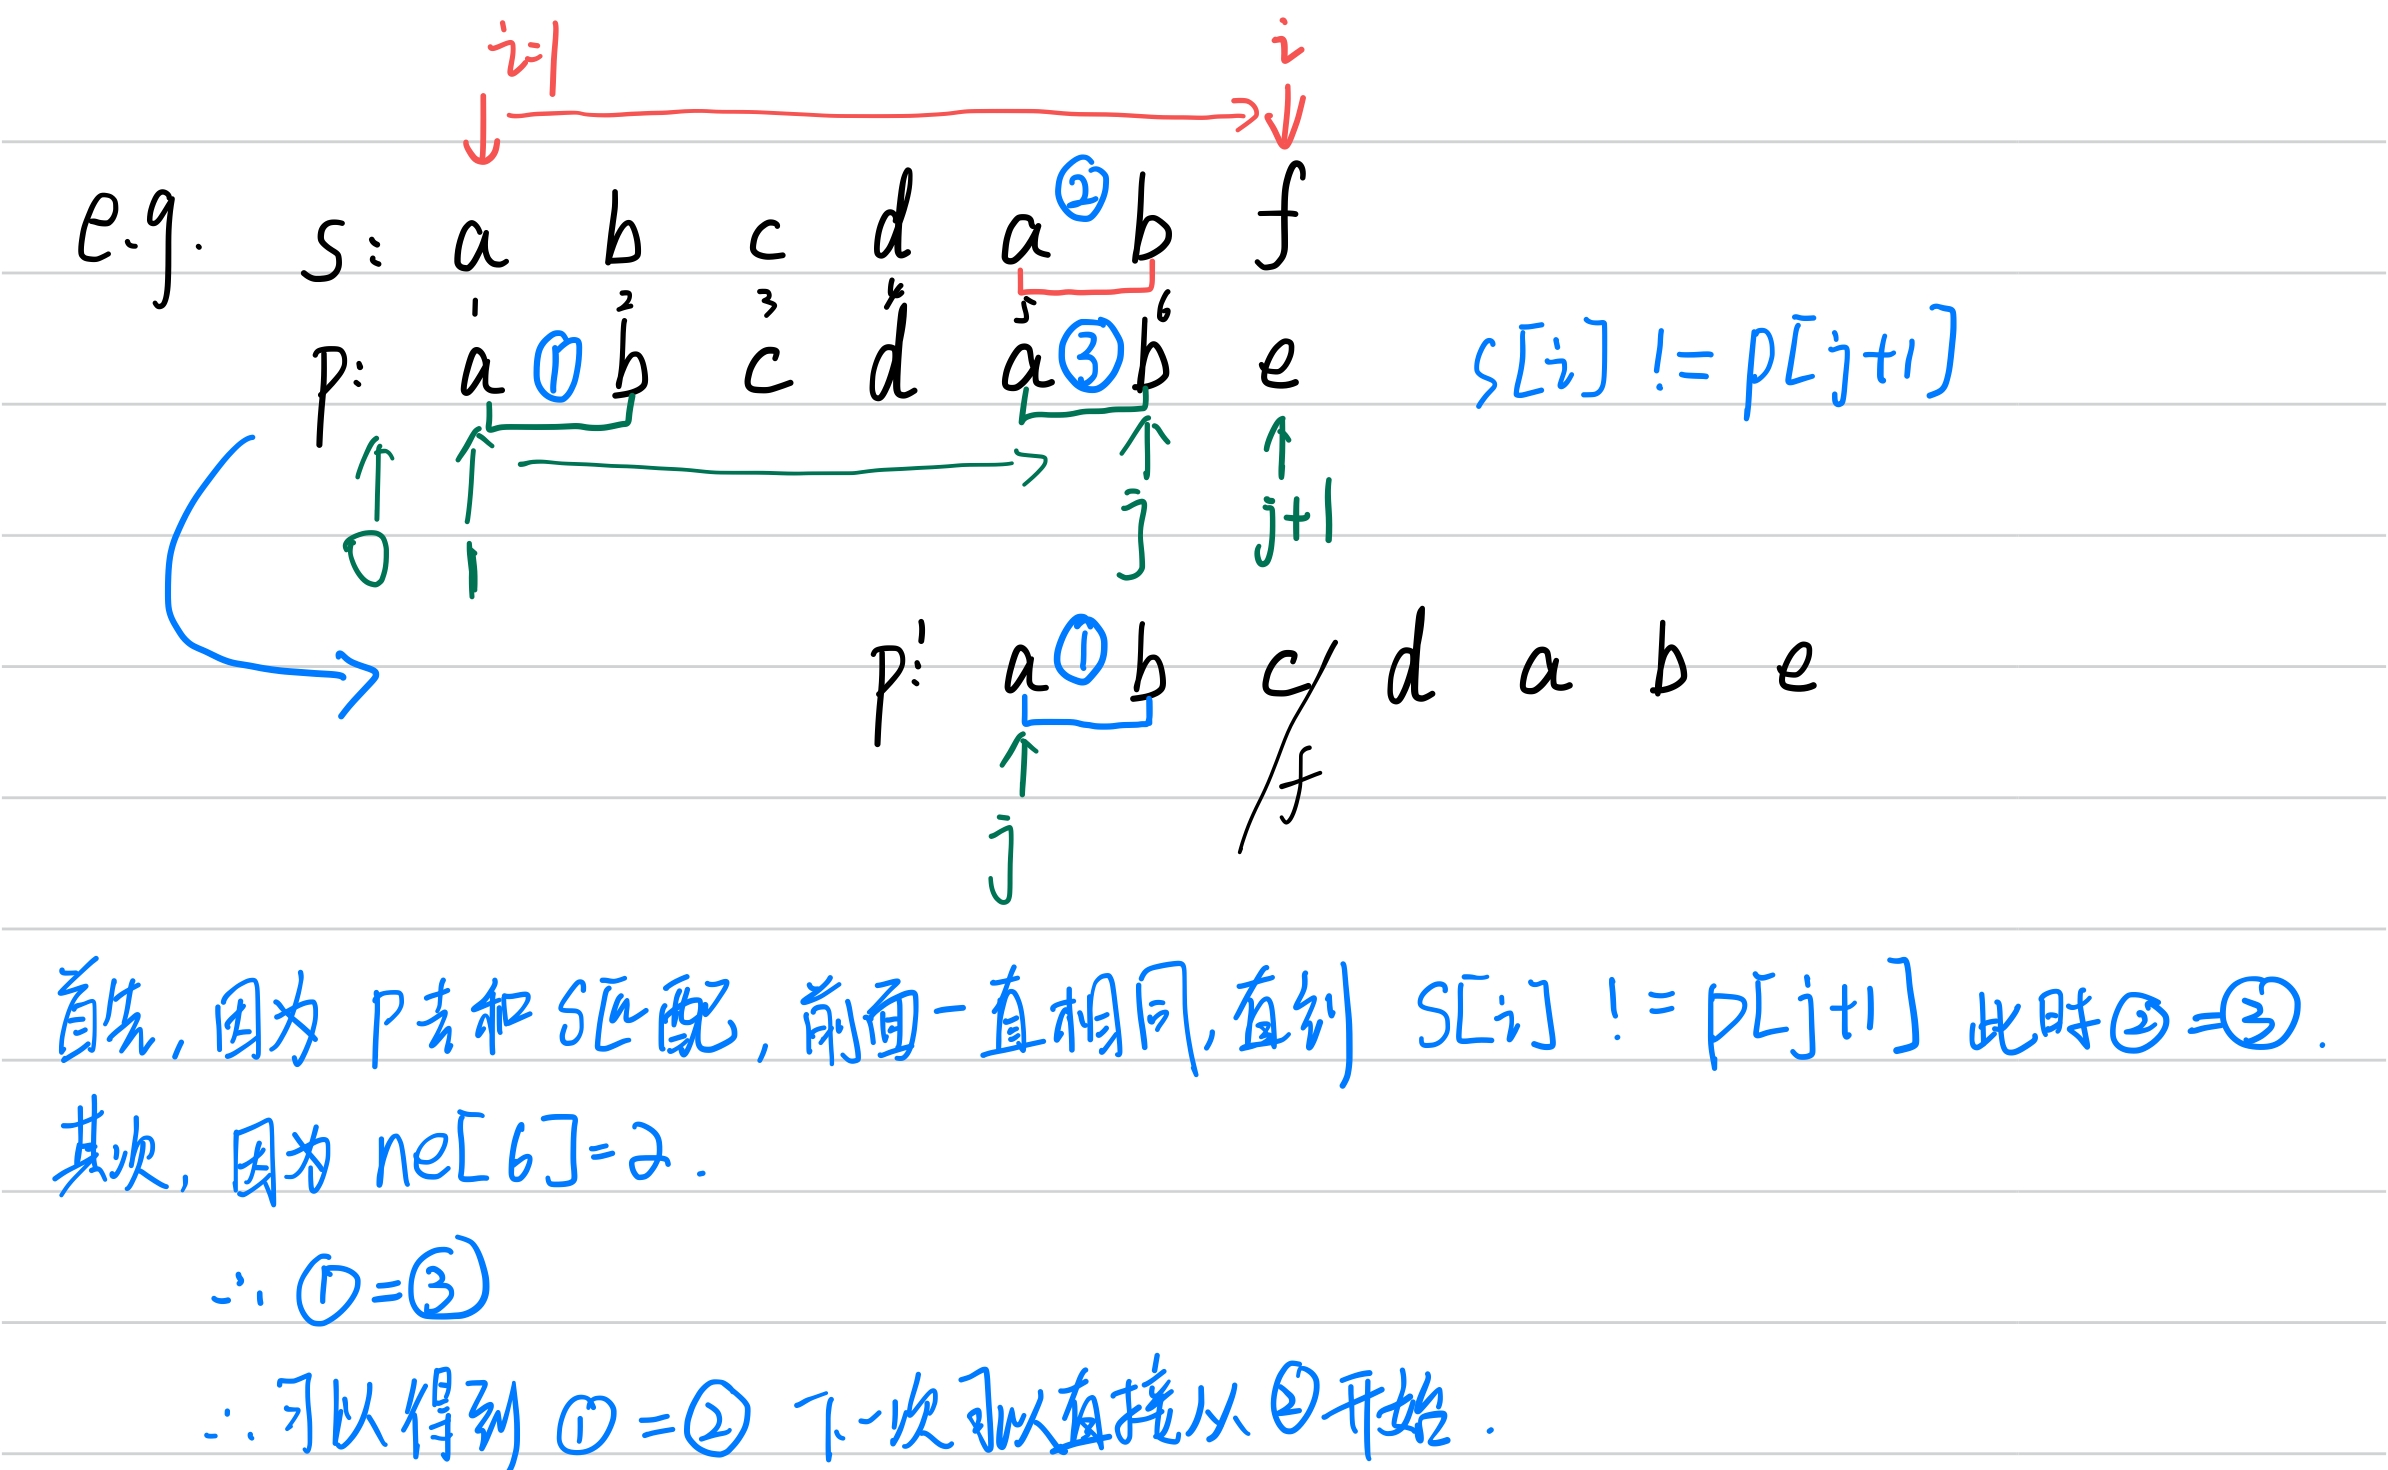 i=1 i
②
e.g. s: a b c d a b f
1 2 3 4 5 6
p: a ① b c d a ③ b e s[i] != p[j+1]
0 1 j j+1
p': a ① b c d a b e
f
j
首先, 因为 P 去和 S 匹配, 前面一直相同, 直到 S[i] != p[j+1] 此时 ② = ③.
其次, 因为 ne[6]=2.
∴ ①=③
∴ 可以得到 ① = ② 下一次可以直接从 ② 开始.